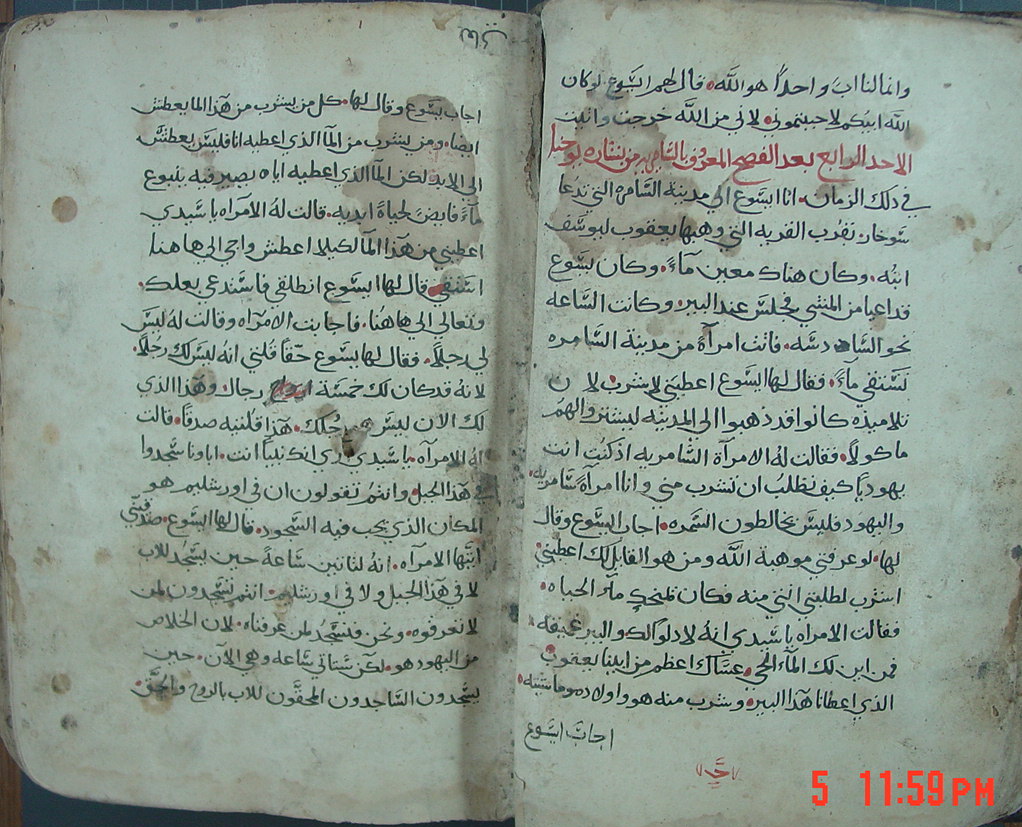 وانما لنا اب واحدًا هو الله. قال لهم ايسوع لو كان
الله ابيكم لاحببتموني. لاني من الله خرجت واتيت
الاحد الرابع بعد الفصح المعروف بالسامريه من بشارة يوحنا
في ذلك الزمان. اتا ايسوع الى مدينة السامره التي تدعا
سوخار. بقرب القريه التي وهبها يعقوب ليوسف
ابنه. وكان هناك معين ماءً. وكان يسوع
قد اعيا من المشي فجلس عند البير. وكانت الساعه
نحو السادسه. فاتت امرآة من مدينة السامره
تستقي ماءً. فقال لها ايسوع اعطيني لاشرب. لان
تلاميذه كانوا قد ذهبوا الى المدينه ليبتاعوا لهم
ماكولاً. فقالت له الامرآة السامريه اذ كنت انت
يهوديًا كيف تطلب ان تشرب مني وانا امرآة سامريه.
واليهود فليس يخالطون السمره. اجاب ايسوع وقال
لها. لو عرفتي موهبة الله ومن هو القايل لك اعطيني
اشرب لطلبتي انتي منه فكان يمنحكِ ماء الحياه.
فقالت الامراه يا سيدي انه لا دلو لك والبير عميقه
فمن اين لك الماء الحي. عساك اعظم من ابينا يعقوب
الذي اعطانا هذا البير. وشرب منه هو واولاده وماشيته.
اجاب ايسوع
اجاب يسوع وقال لها. كل من يشرب من هذا الما يعطش
ايضا. ومن يشرب من الما الذي اعطيه انا فليس يعطش
الى الابد. لكن الما الذي اعطيه اياه يصير فيه ينبوع
ماءً فايضَ لحياة ابديه. قالت له الامرآه يا سيدي
اعطيني من هذا الما لكيلا اعطش واجي الى هاهنا
استقي. قال لها ايسوع انطلقي فاستدعي بعلك.
وتعالي الى هاهنا. فاجابت الامرآه وقالت له ليس
لي رجلاً. فقال لها يسوع حقًا قلتي انه ليس لك رجلاً.
لانه قد كان لك خمسة ازواج رجال وهذا الذي
لك الان ليس هو رجلك. هذا قلتيه صدقًا. قالت
له الامرآه. يا سيدي ارى انك نبيًا انت. اباونا سجدوا
في هذا الجبل. وانتم تقولون ان في اورشليم هو
المكان الذي يجب فيه السجود. قال لها ايسوع. صدقيني
ايتها الامرآه. انه لتاتين ساعةً حين يسجد للاب
لا في هذا الجبل ولا في اورشليم. انتم تسجدون لمن
لا تعرفوه. ونحن فنسجد لمن عرفناه. لان الخلاص
من اليهود هو. لكن ستاتي ساعه وهي الان. حين
يسجدون الساجدون المحقون للاب بالروح والحق.
5 11:59 PM